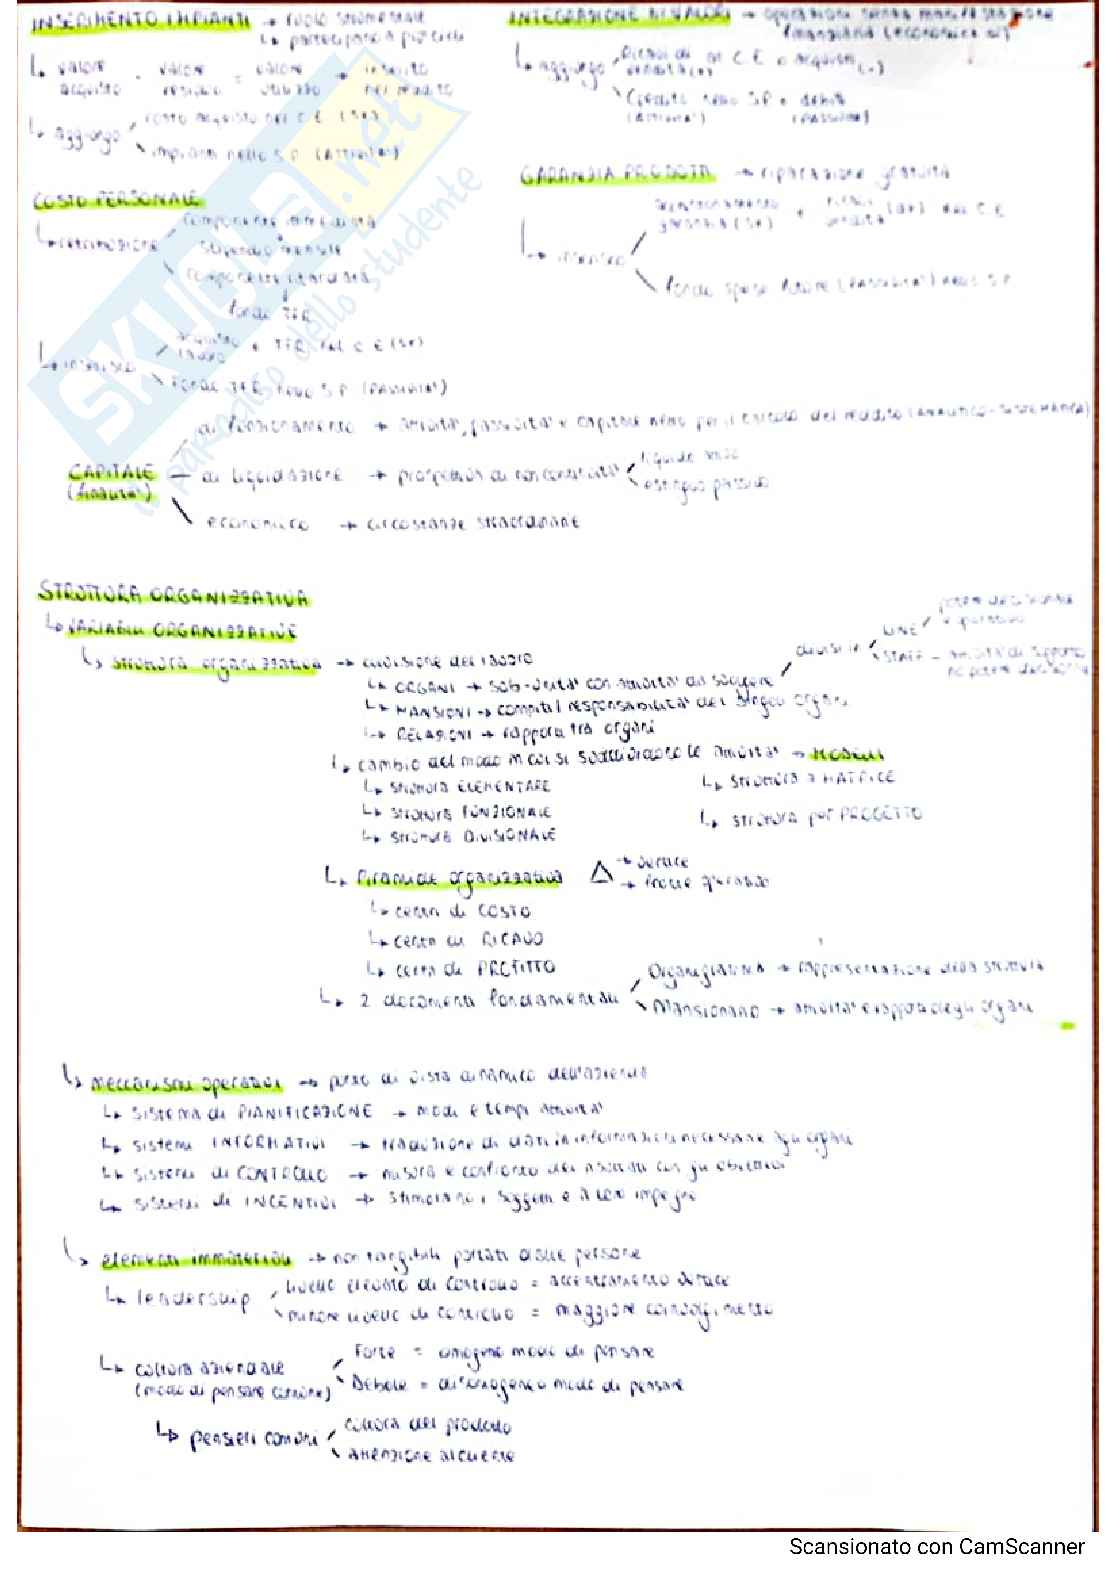 INSERIMENTO IMPIANTI → ruolo strumentale
↳ partecipano a più cicli
↳ valore acquisto - valore residuo = valore utilizzo → inserito nel reddito
↳ aggiungo costo acquisto nel C.E. (SK)
impianti nello S.P. (ATTIVITA')
INTEGRAZIONE DI VALORI → operazioni senza manifestazione finanziaria (economica sì)
↳ aggiungo Ricavi di vendita (+) nel C.E. o acquisti (-)
Crediti nello S.P. o debiti
(ATTIVITA') (PASSIVITA')
COSTO PERSONALE
↳ retribuzione componente immediata
stipendio mensile
componente ritardata
fondo TFR
↳ inserisco acquisto lavoro + TFR nel C.E. (SK)
Fondo TFR nello S.P. (PASSIVITA')
GARANZIA PRODOTTI → riparazione gratuita
↳ inserisco
garanzia (SK) + ricavi vendita nel C.E.
fondo spese future (PASSIVITA') nello S.P.
CAPITALE (finalità)
di funzionamento → attività, passività e capitale netto per il calcolo del reddito (ANALITICO-SISTEMATICA)
di liquidazione → prospettiva di non continuità liquido attivo
estinguo passivo
economico → circostanze straordinarie
STRUTTURA ORGANIZZATIVA
↳ VARIABILI ORGANIZZATIVE
↳ struttura organizzativa → divisione del lavoro
↳ ORGANI → sub-unità con attività da svolgere divisi in LINE potere decisionale e operativo
STAFF - attività di supporto no potere decisionale
↳ MANSIONI → compiti / responsabilità dei singoli organi
↳ RELAZIONI → rapporti tra organi
↳ cambio del modo in cui si suddividono le attività → MODELLI
↳ struttura ELEMENTARE
↳ struttura FUNZIONALE
↳ struttura DIVISIONALE
↳ struttura a MATRICE
↳ struttura per PROGETTO
↳ Piramide organizzativa △ → vertice
→
↳ centri di COSTO
↳ centri di RICAVO
↳ centri di PROFITTO
↳ 2 documenti fondamentali Organigramma → rappresentazione della struttura
Mansionario → attività e rapporti degli organi
↳ meccanismi operativi → punto di vista dinamico dell'azienda
↳ sistema di PIANIFICAZIONE → modi e tempi attività
↳ sistemi INFORMATIVI → traduzione di dati in informazioni necessarie agli organi
↳ sistemi di CONTROLLO → misura e confronto dei risultati con gli obiettivi
↳ sistemi di INCENTIVI → stimolano i soggetti e il loro impegno
↳ elementi immateriali → non tangibili portati dalle persone
↳ leadership livello elevato di controllo = accentramento vertice
minore livello di controllo = maggiore coinvolgimento
↳ cultura aziendale (modo di pensare comune) Forte = omogeneo modo di pensare
Debole = disomogeneo modo di pensare
↳ pensieri comuni cultura del prodotto
attenzione al cliente
SKUOLA.net
il paradiso dello studente
Scansionato con CamScanner